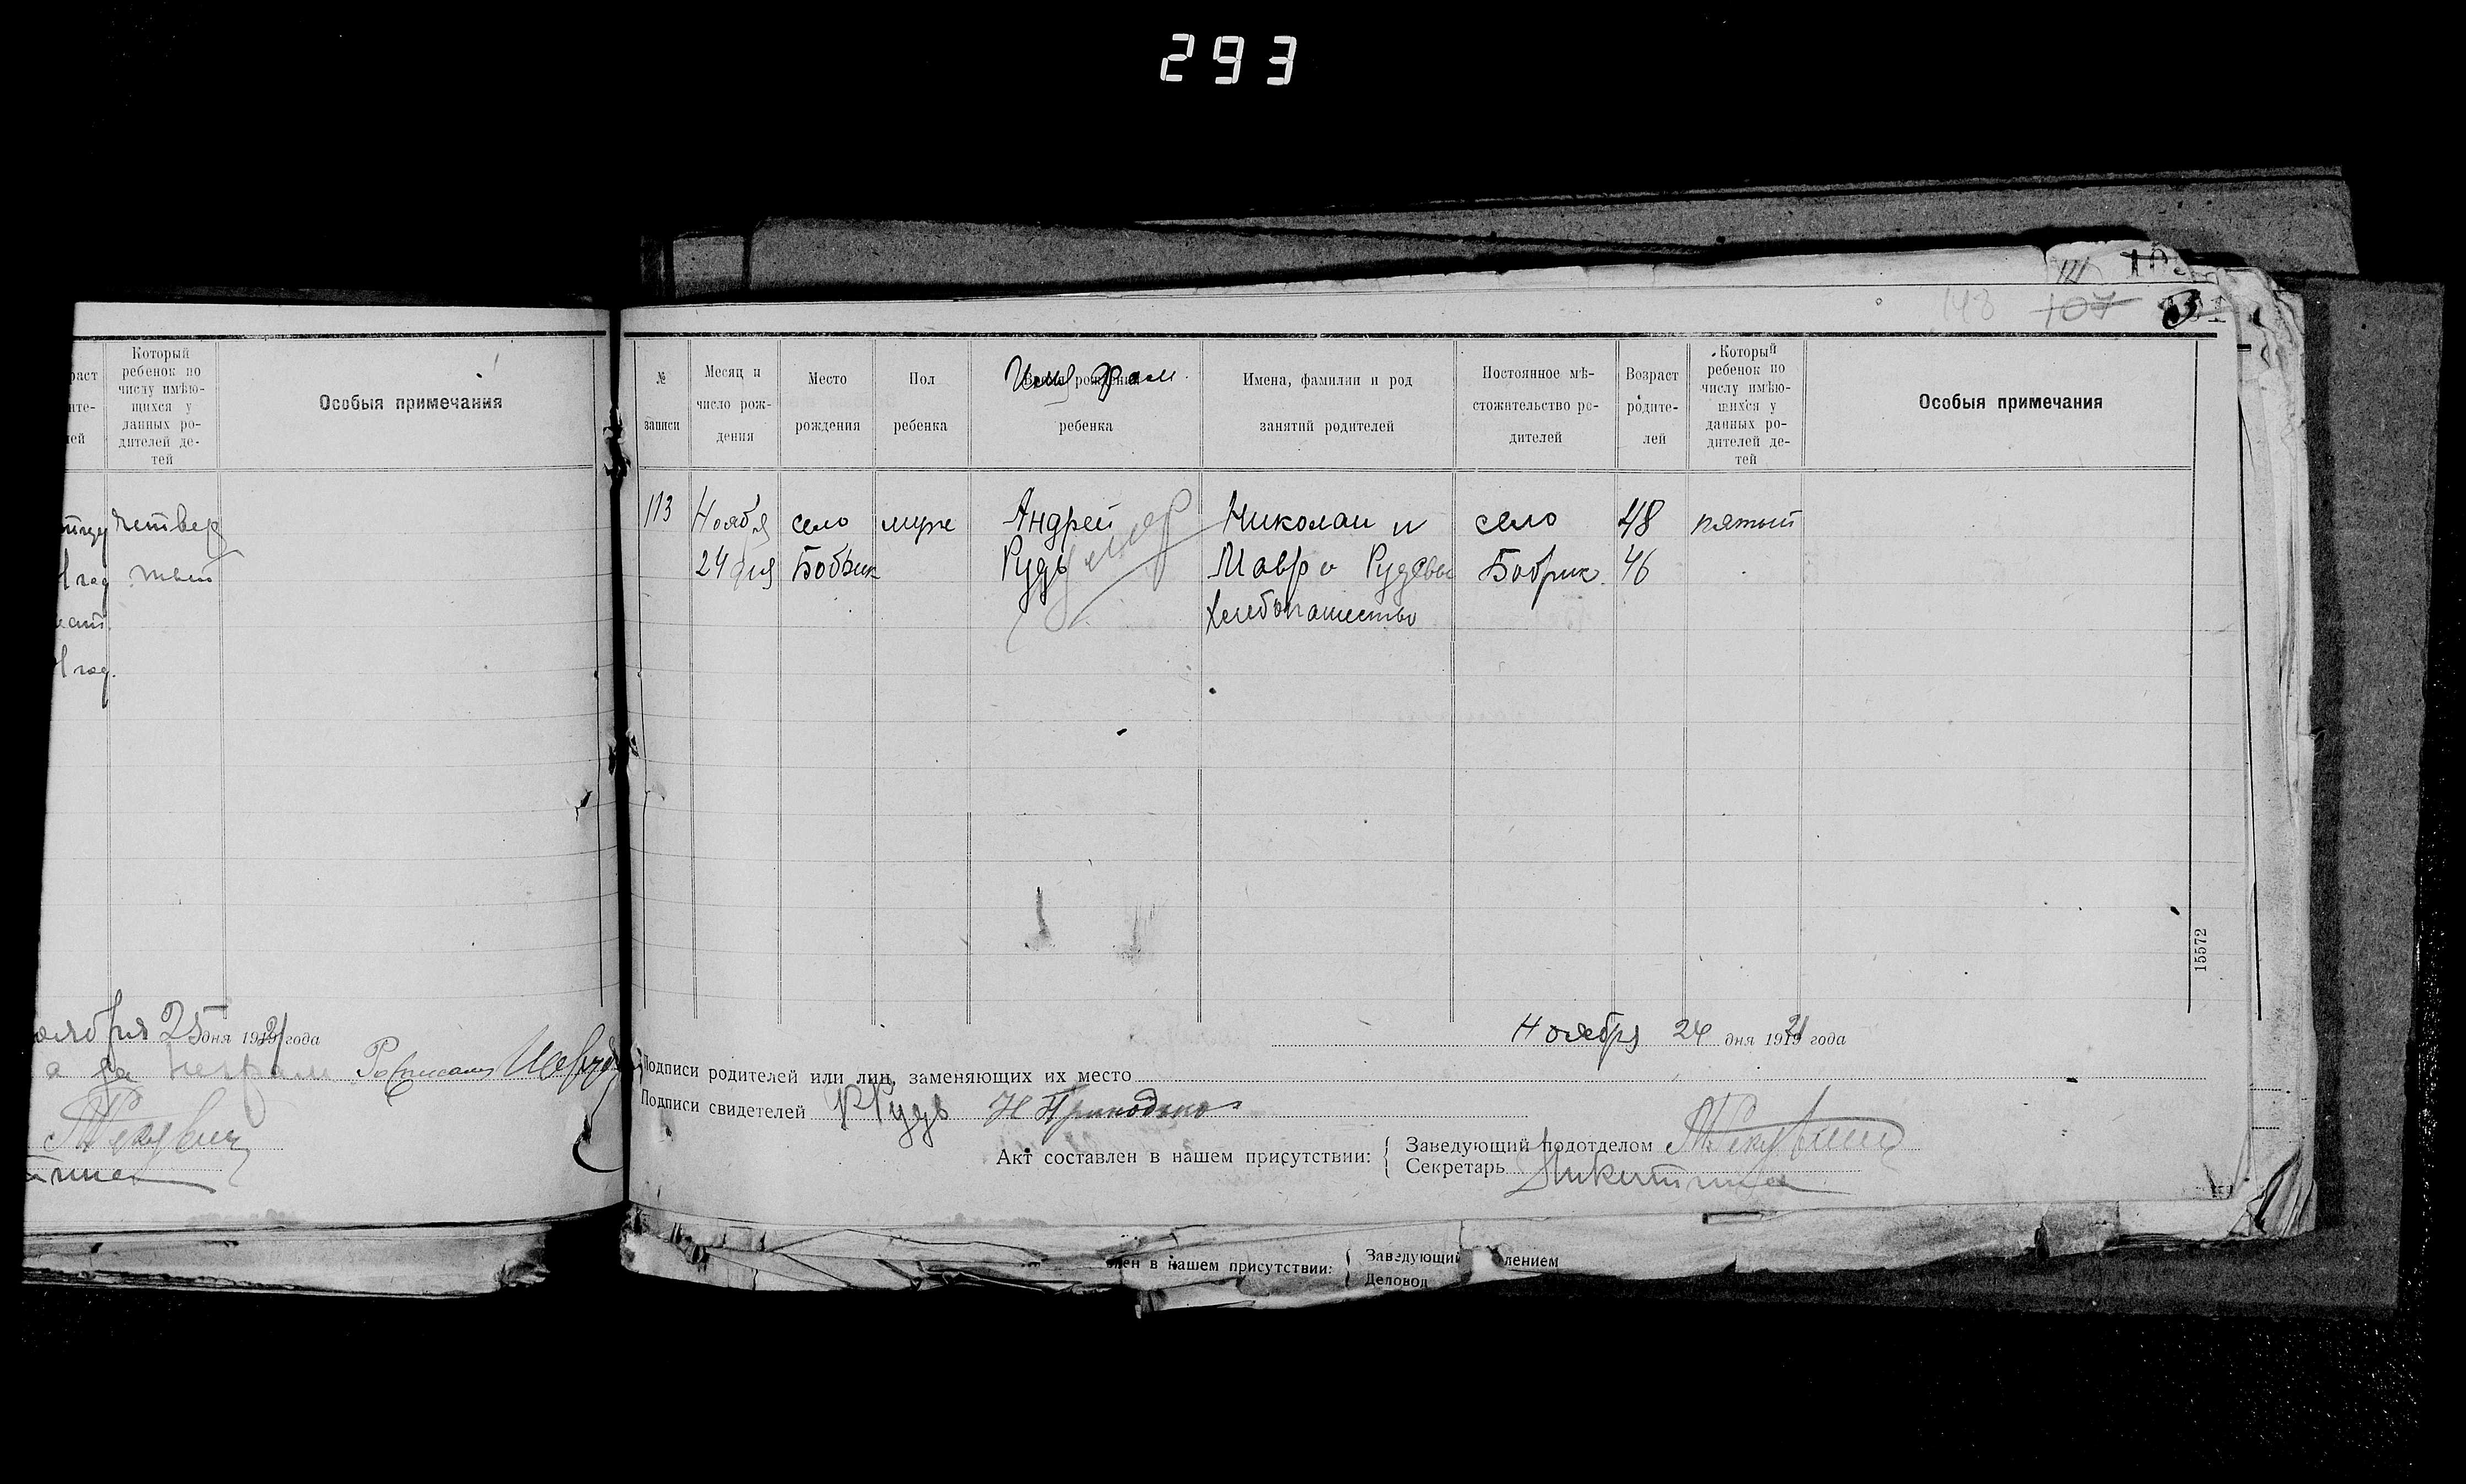 293
143 107
Который
ребенок по
числу имѣю-
щихся у
данных ро-
дителей де-
тей
Особыя примечания
четвер
тый
2 год
ноября 25 дня 1921 года
№
записи
Месяц и
число рож-
дения
Место
рождения
Пол
ребенка
Имя фам
ребенка
Имена, фамилии и род
занятий родителей
Постоянное мѣ-
стожительство ро-
дителей
Возраст
родите-
лей
Который
ребенок по
числу имѣю-
щихся у
данных ро-
дителей де-
тей
Особыя примечания
113 Ноября село муж Андрей Николай и село 48 пятый
24 дня Бобрик Рудь умер Мавра Рудевы Бобрик 46
Хлебопашество
15572
Ноября 24 дня 1921 года
Подписи родителей или лиц, заменяющих их место
Подписи свидетелей Рудь Н Приходько
Акт составлен в нашем присутствии:
Заведующий подотделом
Секретарь Никитина
лен в нашем присутствии:
Заведующий лением
Деловод